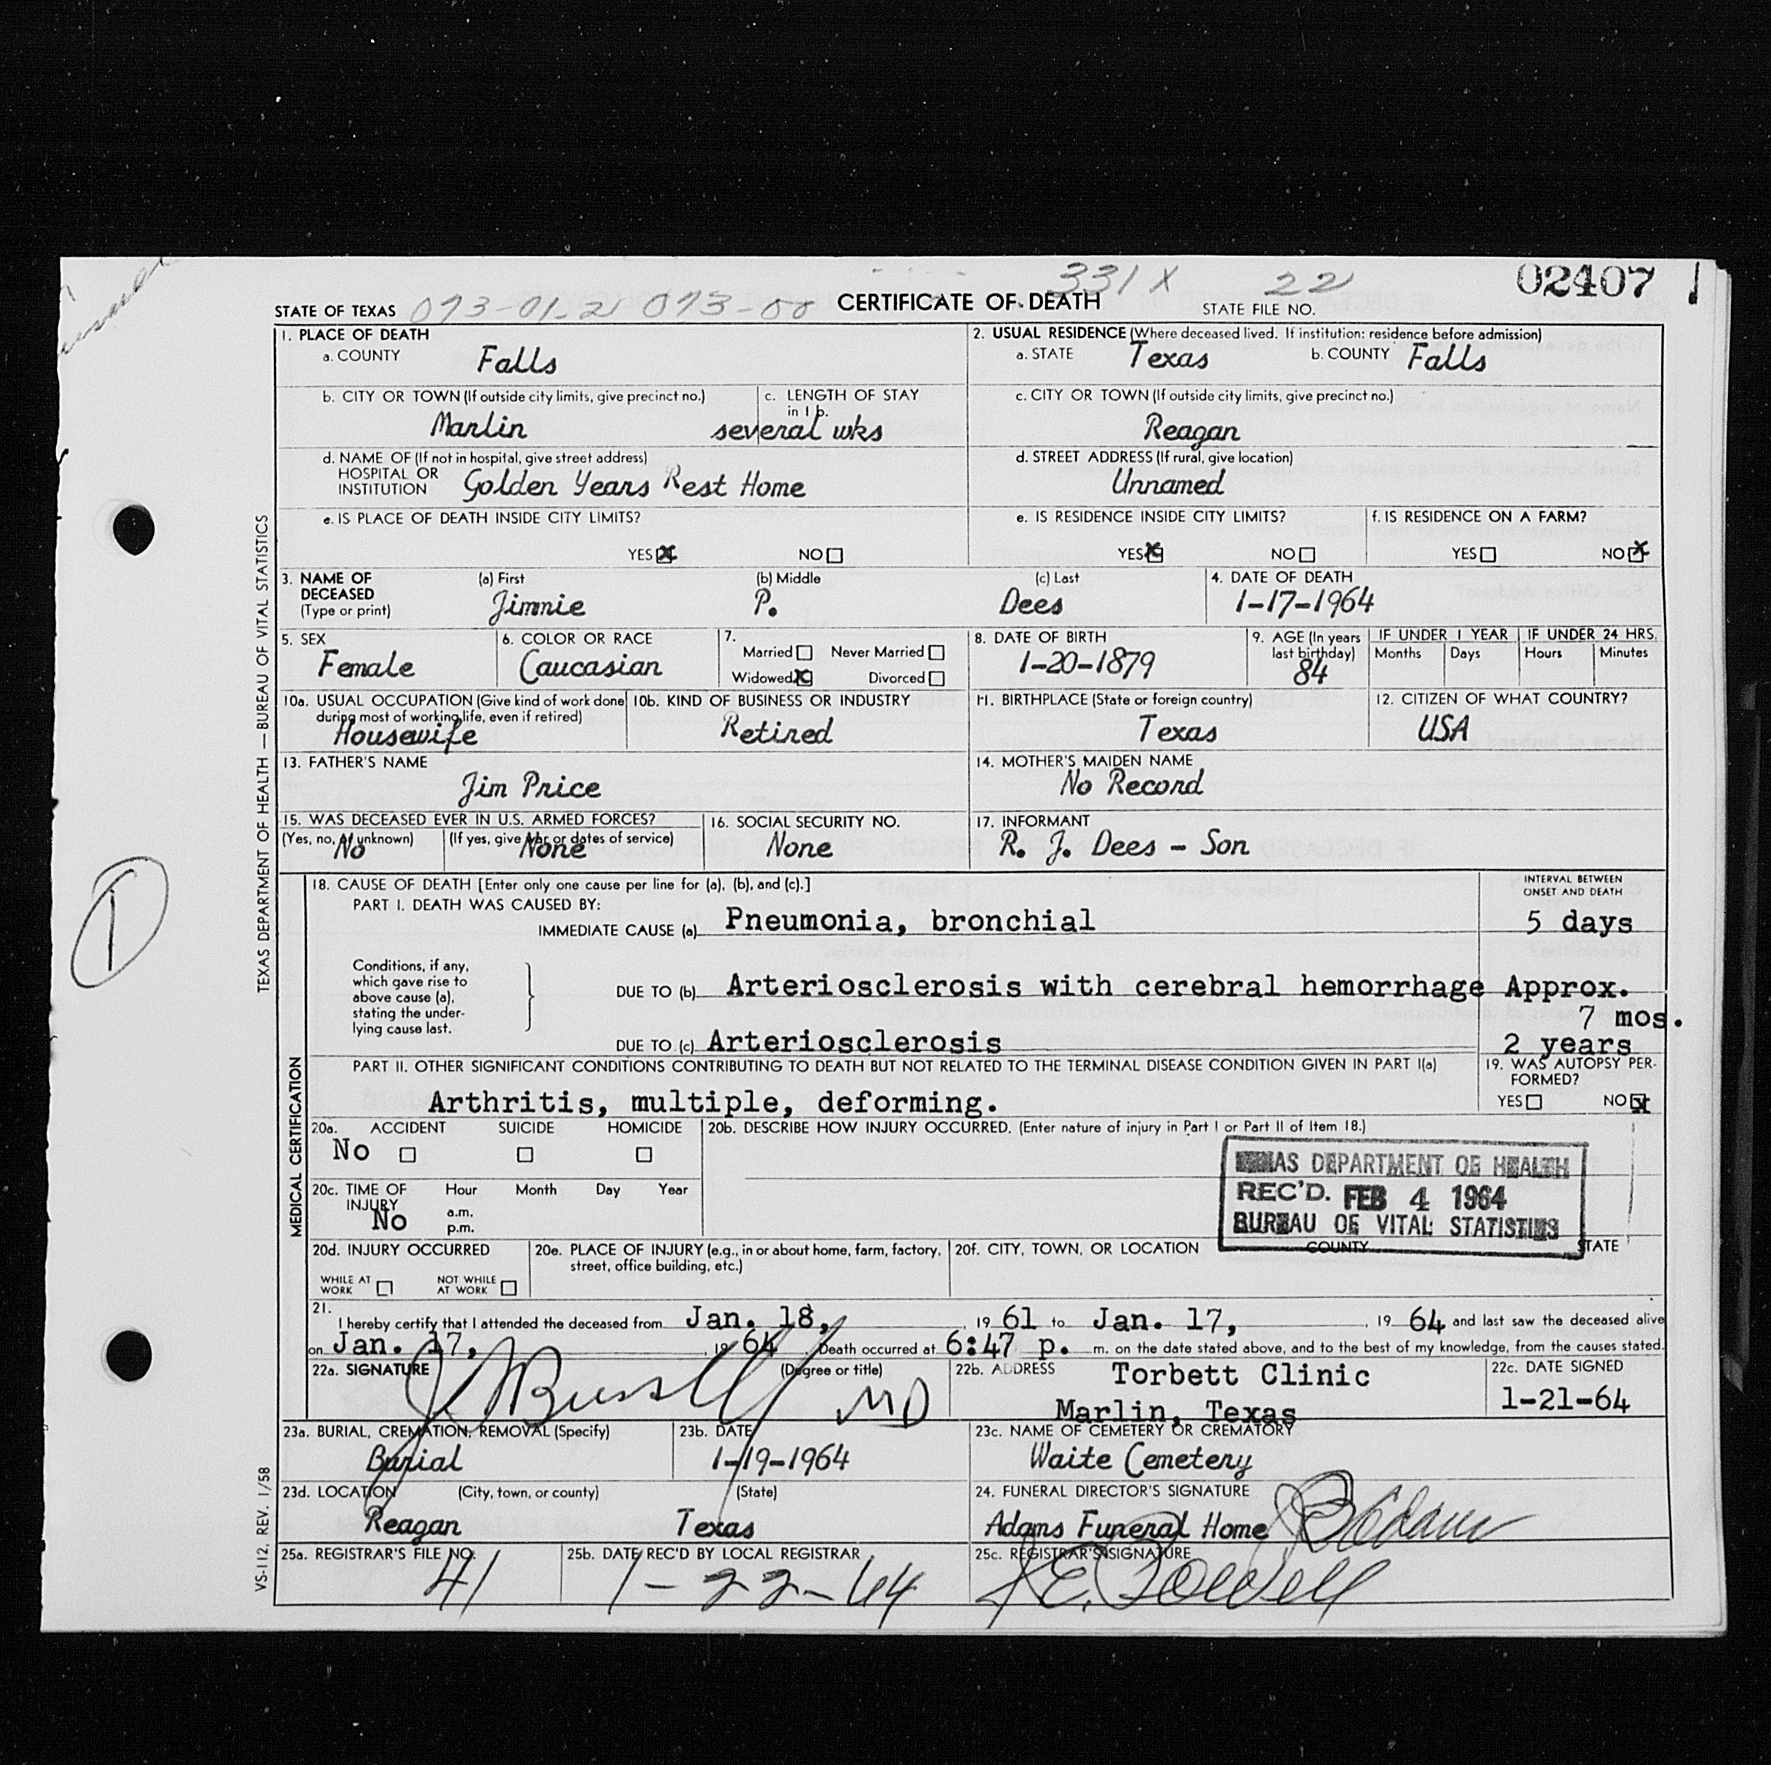 331X 22 02407
STATE OF TEXAS 073-01-21 073-00 CERTIFICATE OF DEATH STATE FILE NO.
1. PLACE OF DEATH
a. COUNTY Falls
2. USUAL RESIDENCE (Where deceased lived. If institution: residence before admission)
a. STATE Texas b. COUNTY Falls
b. CITY OR TOWN (If outside city limits, give precinct no.) Marlin
c. LENGTH OF STAY in 1 b. several wks
c. CITY OR TOWN (If outside city limits, give precinct no.) Reagan
d. NAME OF (If not in hospital, give street address)
HOSPITAL OR
INSTITUTION Golden Years Rest Home
d. STREET ADDRESS (If rural, give location) Unnamed
e. IS PLACE OF DEATH INSIDE CITY LIMITS?
YES X NO
e. IS RESIDENCE INSIDE CITY LIMITS?
YES X NO
f. IS RESIDENCE ON A FARM?
YES NO X
3. NAME OF DECEASED (Type or print) (a) First (b) Middle (c) Last
Jimmie P. Dees
4. DATE OF DEATH 1-17-1964
5. SEX Female
6. COLOR OR RACE Caucasian
7. Married Never Married
Widowed X Divorced
8. DATE OF BIRTH 1-20-1879
9. AGE (In years last birthday) 84
IF UNDER 1 YEAR Months Days
IF UNDER 24 HRS. Hours Minutes
10a. USUAL OCCUPATION (Give kind of work done during most of working life, even if retired) Housewife
10b. KIND OF BUSINESS OR INDUSTRY Retired
11. BIRTHPLACE (State or foreign country) Texas
12. CITIZEN OF WHAT COUNTRY? USA
13. FATHER'S NAME Jim Price
14. MOTHER'S MAIDEN NAME No Record
15. WAS DECEASED EVER IN U.S. ARMED FORCES?
(Yes, no, or unknown) No (If yes, give war or dates of service) None
16. SOCIAL SECURITY NO. None
17. INFORMANT R. J. Dees - Son
18. CAUSE OF DEATH [Enter only one cause per line for (a), (b), and (c).]
INTERVAL BETWEEN ONSET AND DEATH
PART I. DEATH WAS CAUSED BY:
IMMEDIATE CAUSE (a) Pneumonia, bronchial 5 days
Conditions, if any, which gave rise to above cause (a), stating the underlying cause last.
DUE TO (b) Arteriosclerosis with cerebral hemorrhage Approx. 7 mos.
DUE TO (c) Arteriosclerosis 2 years
PART II. OTHER SIGNIFICANT CONDITIONS CONTRIBUTING TO DEATH BUT NOT RELATED TO THE TERMINAL DISEASE CONDITION GIVEN IN PART I(a)
Arthritis, multiple, deforming.
19. WAS AUTOPSY PERFORMED?
YES NO X
20a. ACCIDENT SUICIDE HOMICIDE
No
20b. DESCRIBE HOW INJURY OCCURRED. (Enter nature of injury in Part I or Part II of Item 18.)
20c. TIME OF INJURY Hour Month Day Year
No a.m.
p.m.
TEXAS DEPARTMENT OF HEALTH
REC'D. FEB 4 1964
BUREAU OF VITAL STATISTICS
20d. INJURY OCCURRED
WHILE AT WORK NOT WHILE AT WORK
20e. PLACE OF INJURY (e.g., in or about home, farm, factory, street, office building, etc.)
20f. CITY, TOWN, OR LOCATION COUNTY STATE
21. I hereby certify that I attended the deceased from Jan. 18, 1961 to Jan. 17, 1964 and last saw the deceased alive
on Jan. 17, 1964. Death occurred at 6:47 p. m. on the date stated above, and to the best of my knowledge, from the causes stated.
22a. SIGNATURE (Degree or title) MD
22b. ADDRESS Torbett Clinic
Marlin, Texas
22c. DATE SIGNED 1-21-64
23a. BURIAL, CREMATION, REMOVAL (Specify) Burial
23b. DATE 1-19-1964
23c. NAME OF CEMETERY OR CREMATORY Waite Cemetery
23d. LOCATION (City, town, or county) (State)
Reagan Texas
24. FUNERAL DIRECTOR'S SIGNATURE
Adams Funeral Home B Adams
25a. REGISTRAR'S FILE NO. 41
25b. DATE REC'D BY LOCAL REGISTRAR 1-22-64
25c. REGISTRAR'S SIGNATURE
J E. Powell
TEXAS DEPARTMENT OF HEALTH — BUREAU OF VITAL STATISTICS
MEDICAL CERTIFICATION
VS-112, REV. 1/58
1